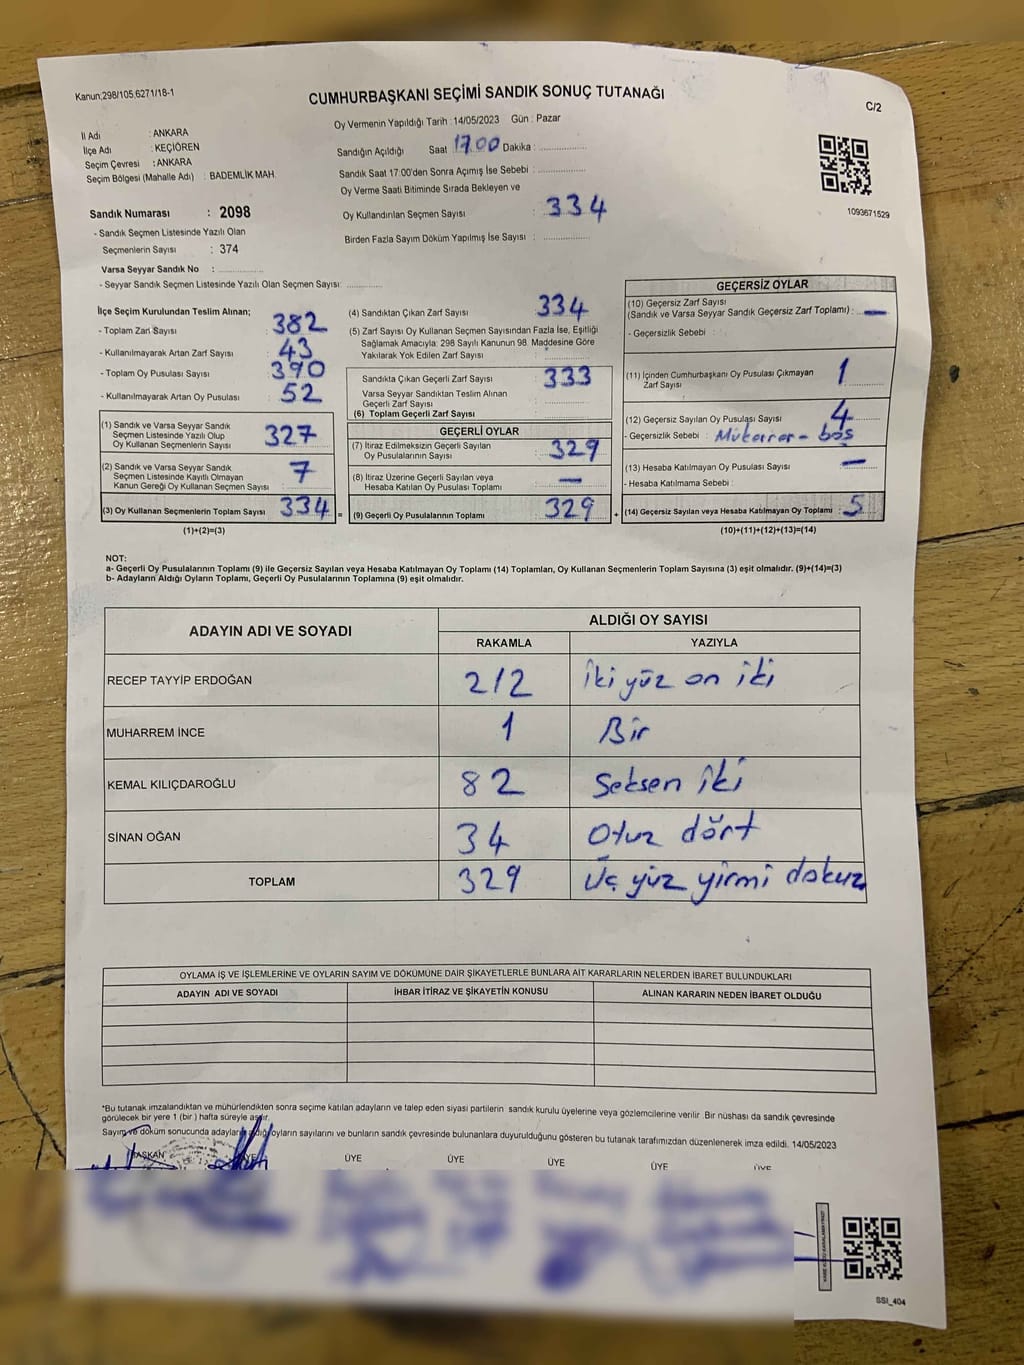 Kanun;298/105,6271/18-1
CUMHURBAŞKANI SEÇİMİ SANDIK SONUÇ TUTANAĞI
C/2
İl Adı : ANKARA
İlçe Adı : KEÇİÖREN
Seçim Çevresi : ANKARA
Seçim Bölgesi (Mahalle Adı) : BADEMLİK MAH.
Oy Vermenin Yapıldığı Tarih : 14/05/2023 Gün : Pazar
Sandığın Açıldığı Saat 17.00 Dakika :
Sandık Saat 17.00'den Sonra Açımış İse Sebebi :
Oy Verme Saati Bitiminde Sırada Bekleyen ve
Oy Kullandırılan Seçmen Sayısı : 334
Birden Fazla Sayım Döküm Yapılmış İse Sayısı :
1093671529
Sandık Numarası : 2098
- Sandık Seçmen Listesinde Yazılı Olan
Seçmenlerin Sayısı : 374
Varsa Seyyar Sandık No :
- Seyyar Sandık Seçmen Listesinde Yazılı Olan Seçmen Sayısı:
İlçe Seçim Kurulundan Teslim Alınan;
- Toplam Zarf Sayısı 382
- Kullanılmayarak Artan Zarf Sayısı 43
- Toplam Oy Pusulası Sayısı 390
- Kullanılmayarak Artan Oy Pusulası 52
(1) Sandık ve Varsa Seyyar Sandık
Seçmen Listesinde Yazılı Olup
Oy Kullanan Seçmenlerin Sayısı 327
(2) Sandık ve Varsa Seyyar Sandık
Seçmen Listesinde Kayıtlı Olmayan
Kanun Gereği Oy Kullanan Seçmen Sayısı 7
(3) Oy Kullanan Seçmenlerin Toplam Sayısı 334 =
(1)+(2)=(3)
(4) Sandıktan Çıkan Zarf Sayısı 334
(5) Zarf Sayısı Oy Kullanan Seçmen Sayısından Fazla İse, Eşitliği
Sağlamak Amacıyla; 298 Sayılı Kanunun 98. Maddesine Göre
Yakılarak Yok Edilen Zarf Sayısı
Sandıkta Çıkan Geçerli Zarf Sayısı 333
Varsa Seyyar Sandıktan Teslim Alınan
Geçerli Zarf Sayısı
(6) Toplam Geçerli Zarf Sayısı
GEÇERLİ OYLAR
(7) İtiraz Edilmeksizin Geçerli Sayılan
Oy Pusulalarının Sayısı 329
(8) İtiraz Üzerine Geçerli Sayılan veya
Hesaba Katılan Oy Pusulası Toplamı —
(9) Geçerli Oy Pusulalarının Toplamı 329 +
GEÇERSİZ OYLAR
(10) Geçersiz Zarf Sayısı
(Sandık ve Varsa Seyyar Sandık Geçersiz Zarf Toplamı) : —
- Geçersizlik Sebebi :
(11) İçinden Cumhurbaşkanı Oy Pusulası Çıkmayan
Zarf Sayısı 1
(12) Geçersiz Sayılan Oy Pusulası Sayısı 4
- Geçersizlik Sebebi : Mükerrer - boş
(13) Hesaba Katılmayan Oy Pusulası Sayısı —
- Hesaba Katılmama Sebebi :
(14) Geçersiz Sayılan veya Hesaba Katılmayan Oy Toplamı : 5
(10)+(11)+(12)+(13)=(14)
NOT:
a- Geçerli Oy Pusulalarının Toplamı (9) ile Geçersiz Sayılan veya Hesaba Katılmayan Oy Toplamı (14) Toplamları, Oy Kullanan Seçmenlerin Toplam Sayısına (3) eşit olmalıdır. (9)+(14)=(3)
b- Adayların Aldığı Oyların Toplamı, Geçerli Oy Pusulalarının Toplamına (9) eşit olmalıdır.
ADAYIN ADI VE SOYADI
ALDIĞI OY SAYISI
RAKAMLA YAZIYLA
RECEP TAYYİP ERDOĞAN 212 İki yüz on iki
MUHARREM İNCE 1 Bir
KEMAL KILIÇDAROĞLU 82 Seksen iki
SİNAN OĞAN 34 Otuz dört
TOPLAM 329 Üç yüz yirmi dokuz
OYLAMA İŞ VE İŞLEMLERİNE VE OYLARIN SAYIM VE DÖKÜMÜNE DAİR ŞİKAYETLERLE BUNLARA AİT KARARLARIN NELERDEN İBARET BULUNDUKLARI
ADAYIN ADI VE SOYADI İHBAR İTİRAZ VE ŞİKAYETİN KONUSU ALINAN KARARIN NEDEN İBARET OLDUĞU
*Bu tutanak imzalandıktan ve mühürlendikten sonra seçime katılan adayların ve talep eden siyasi partilerin sandık kurulu üyelerine veya gözlemcilerine verilir. Bir nüshası da sandık çevresinde
görülecek bir yere 1 (bir ) hafta süreyle asılır.
Sayım ve döküm sonucunda adayların aldığı oyların sayılarını ve bunların sandık çevresinde bulunanlara duyurulduğunu gösteren bu tutanak tarafımızdan düzenlenerek imza edildi. 14/05/2023
BAŞKAN ÜYE ÜYE ÜYE ÜYE ÜYE ÜYE
SSI_404